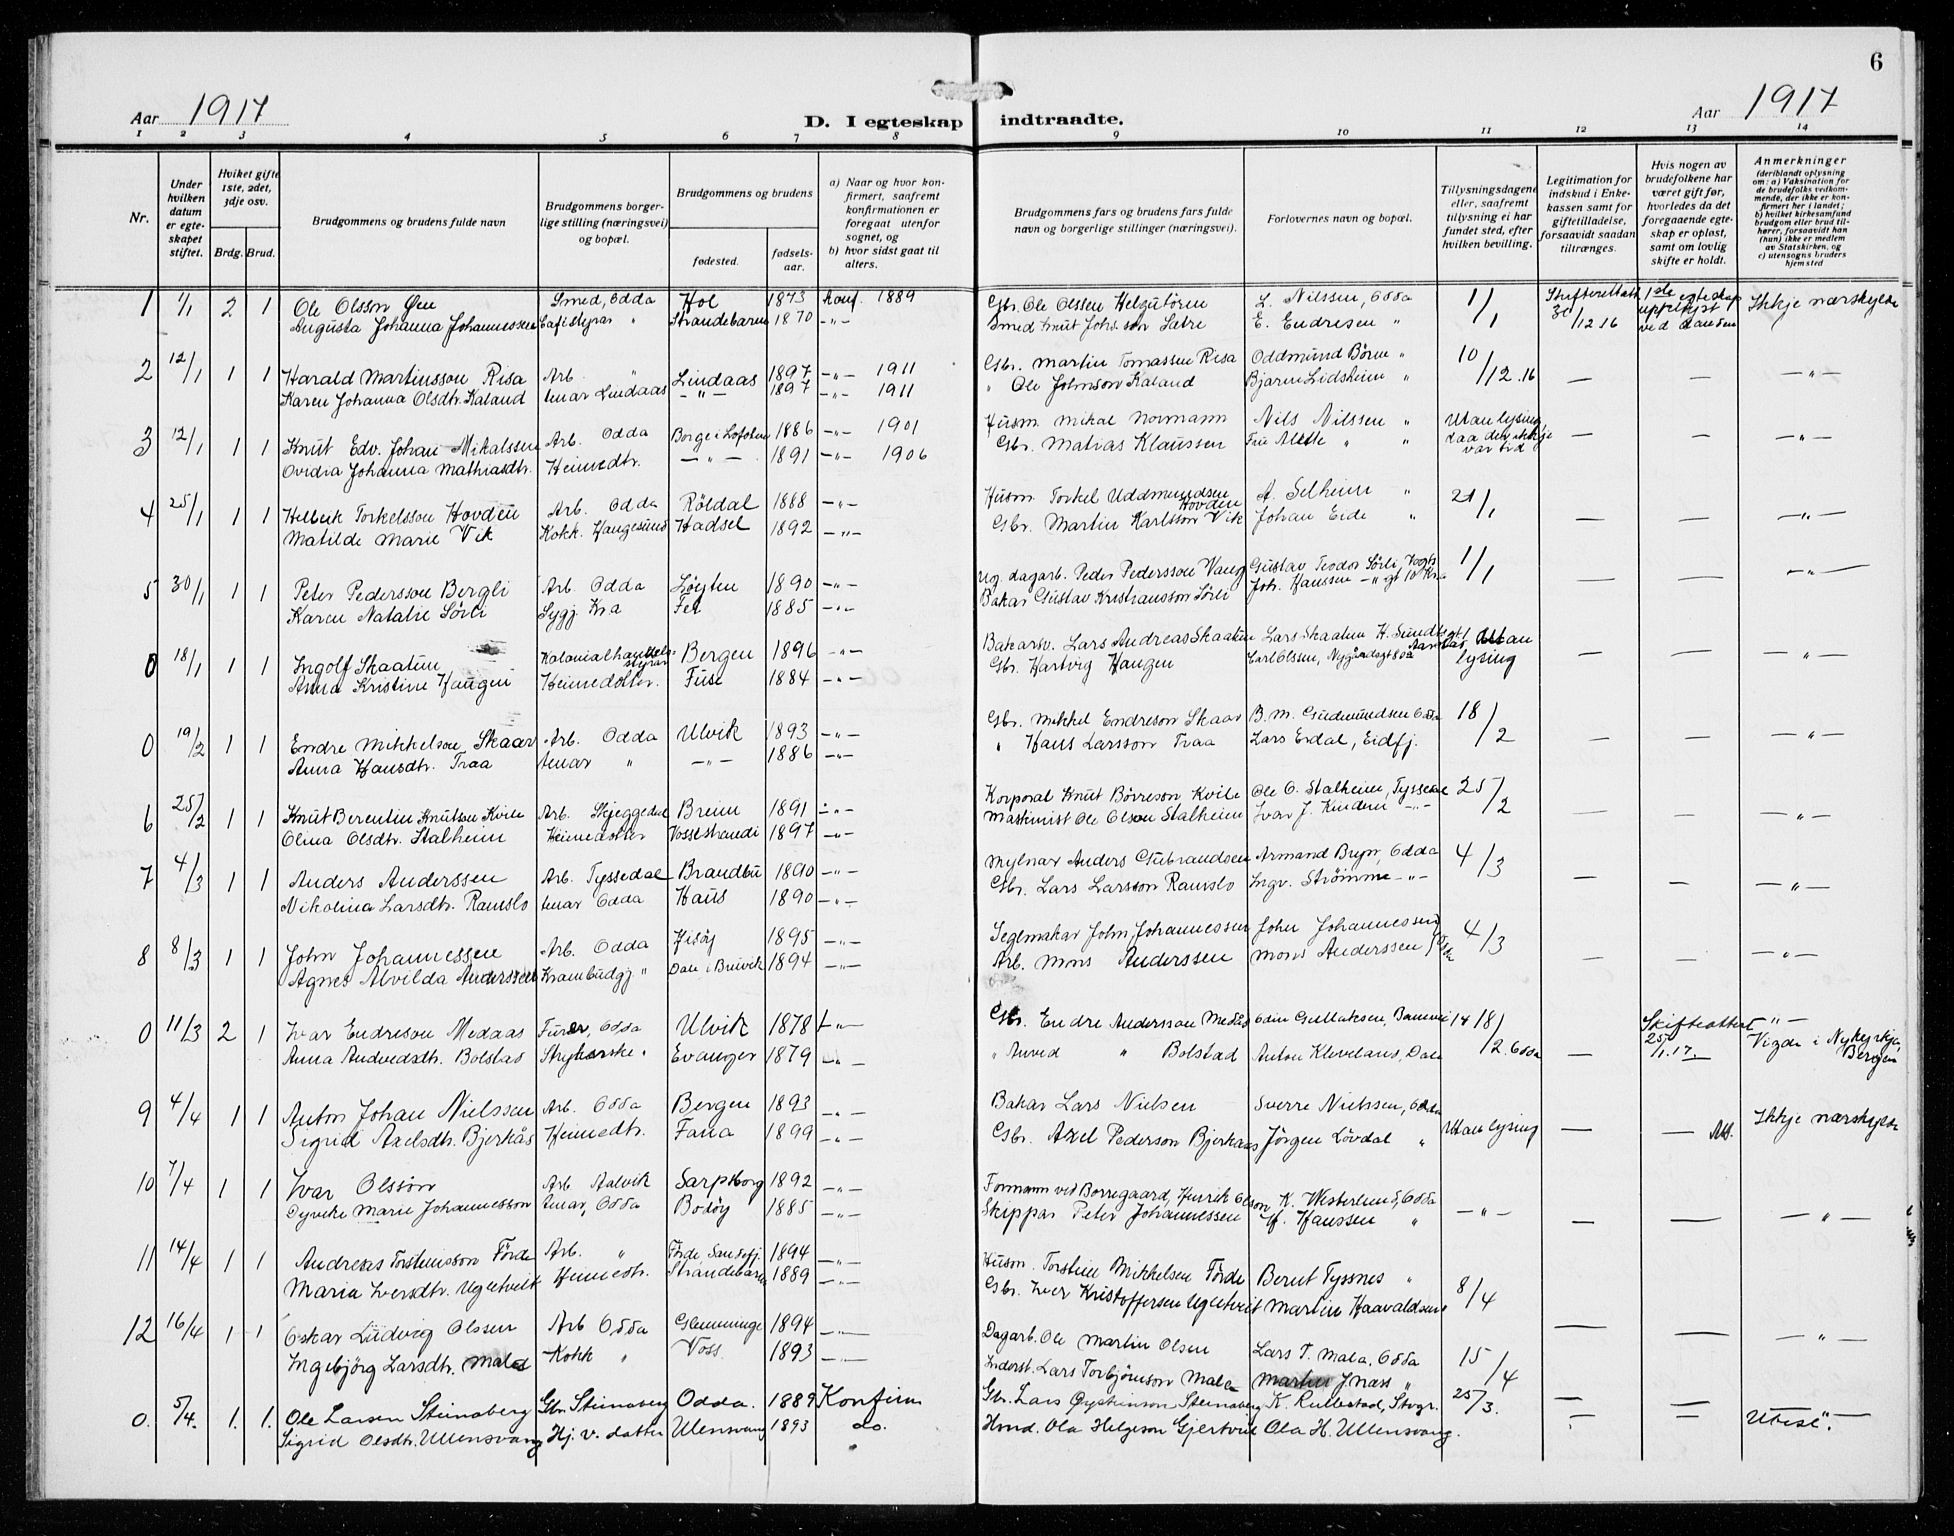 6
Aar 1917
D. I egteskap indtraadte.
Aar 1917
1 2 3 4 5 6 7 8 9 10 11 12 13 14
Nr.
Under hvilken datum er egteskapet stiftet.
Hviket gifte 1ste, 2det, 3dje osv.
Brdg. Brud.
Brudgommens og brudens fulde navn
Brudgommens borgerlige stilling (næringsvei) og bopæl.
Brudgommens og brudens
fødested.
fødselsaar.
a) Naar og hvor konfirmert, saafremt konfirmationen er foregaat utenfor sognet, og
b) hvor sidst gaat til alters.
Brudgommens fars og brudens fars fulde navn og borgerlige stillinger (næringsvei).
Forlovernes navn og bopæl.
Tillysningsdagene eller, saafremt tillysning ei har fundet sted, efter hvilken bevilling.
Legitimation for indskud i Enkekassen samt for giftetilladelse, forsaavidt saadan tiltrænges.
Hvis nogen av brudefolkene har været gift før, hvorledes da det foregaaende egteskap er opløst, samt om lovlig skifte er holdt.
Anmerkninger (deriblandt oplysning om: a) Vaksination for de brudefolks vedkommende, der ikke er konfirmert her i landet; b) hvilket kirkesamfund brudgom eller brud tilhører, forsaavidt han (hun) ikke er medlem av Statskirken, og c) utensogns bruders hjemsted
1 1/1 2 1 Ole Olsson Øen Smed, Odda Hol 1873 Konf. 1889 Gbr. Ole Olssen Helgutøren L. Nilssen, Odda 1/1 Skifteratt 30/12 16 1ste egteskap uppløyst ved dauden Ikkje nærskylde
Augusta Johanna Johannessen Cafestyrar " Strandebarm 1870 -"- Smed Knut Johs.son Sætre E. Endresen "
2 12/1 1 1 Harald Martinsson Risa Arb. " Lindaas 1897 -"- 1911 Gbr. Martin Tomassen Risa Oddmund Børve " 10/12.16 — — -"-
Karen Johanna Olsdtr. Kaland tenar Lindaas -"- 1897 -"- 1911 " Ole Johnson Kaland Bjarne Lidsheim "
3 12/1 1 1 Knut Edv. Johan Mikalssen Arb. Odda Borge i Lofoten 1886 -"- 1901 Husm. Mikal Normann Nils Nilssen " Utan lysing, daa der ikkje var tid — — -"-
Ovidia Johanna Mathiasdtr. Heimedtr. -"- 1891 -"- 1906 Gbr. Matias Klaussen Fru Mette " "
4 25/1 1 1 Helleik Torkelsson Hovden Arb. Odda Röldal 1888 -"- Husm. Torkel Uddmundsen Hovden A. Selheim " 21/1 — — -"-
Matilde Marie Vik Kokk. Haugesund Hadsel 1892 -"- Gbr. Martin Karlsson Vik Johan Eide "
5 30/1 1 1 Peter Pedersson Bergli Arb. Odda Löyten 1890 -"- Ug. dagarb. Peder Pedersson Vang Gustav Teodor Sörli, Vogts 1/1 — — -"-
Karen Natalie Sörli Sygj. Kra Fet 1885 -"- Bakar Gustav Kristiansson Sörli Joh. Hanssen -"- gt 10 Kra
0 18/1 1 1 Ingolf Skaatun Kolonialhandelsstyrar Bergen 1896 -"- Bakarsv. Lars Andreas Skaatun Lars Skaatun H. Sundt Utan lysing — — -"-
Anna Kristine Haugen Heimedotter. Fuse 1884 -"- Gbr. Hartvig Haugen Carl Olssen, Nygårdsgt 80a
0 19/2 1 1 Endre Mikkelson Skaar Arb. Odda Ulvik 1893 -"- Gbr. Mikkel Endreson Skaar B. M. Gudmundsen Odda 18/2 — — -"-
Anna Hansdtr. Traa tenar " -"- 1886 -"- " Hans Larsson Traa Lars Erdal, Eidfj.
6 25/2 1 1 Knut Berentin Knutson Kvile Arb. Skjeggedal Breim 1891 -"- Korporal Knut Börreson Kvile Ole O. Stalheim, Tyssedal 25/2 — — -"-
Olina Olsdtr. Stalheim Heimedotter Vossestrandi 1897 -"- Maskinist Ole Olson Stalheim Ivar J. Kinden -"-
7 4/3 1 1 Anders Anderssen Arb. Tyssedal Brandbu 1890 -"- Mylnar Anders Gubrandsen Armand Bryn, Odda 4/3 — — -"-
Nikolina Larsdtr. Ramslo tenar Odda Haus 1890 -"- Gbr. Lars Larsson Ramslo Ingv. Strömme -"-
8 8/3 1 1 John Johannessen Arb. Odda Hisöy 1895 -"- Seglmakar John Johannessen John Johannessen 4/3 — — -"-
Agnes Alvilda Anderssen Krambudgj " Dale i Bruvik 1894 -"- Arb. Mons Anderssen Mons Anderssen
0 11/3 2 1 Ivar Endreson Medaas Furer, Odda Ulvik 1878 -"- Gbr. Endre Anderssen Medås Odin Gullaksen, 18/2. Odda — Skifteattest 25/1.17. -"-
Anna Andvedsdtr. Bolstad Strykerske " Evanger 1879 -"- " Anved " Bolstad Anton Kleveland, Dale Vigde i Nykyrkja, Bergen
9 4/4 1 1 Anton Johan Nielssen Arb. Odda Bergen 1893 -"- Bakar Lars Nielsen Sverre Nielssen, Odda Utan lysing — — Ikkje nærskylde
Sigrid Axelsdtr. Bjerkås Heimedtr. Fana 1899 -"- Gbr. Axel Pederson Bjerkaas Jörgen Lövdal "
10 7/4 1 1 Ivar Olsson Arb Aalvik Sarpsborg 1892 -"- Formann ved Borregaard, Henrik Olson K. Westerlund, Odda -"- — — -"-
Dyveke Marie Johannesson tenar, Odda Bodöy 1885 -"- Skippar Peter Johannessen H. Hanssen "
11 14/4 1 1 Andreas Torsteinsson Förde Arb. " Förde, Sandefj. 1894 -"- Husm. Torstein Mikkelsen Förde Bernt Tyssnes " 8/4
Maria Iversdtr. Ugletveit Heimedtr. Strandebarm 1889 -"- Gbr. Iver Kristoffersen Ugletveit Martin Haavaldsen "
12 16/4 1 1 Oskar Ludvig Olssen Arb Odda Glemminge 1894 -"- Dagarb. Ole Martin Olsen Lars T. Mala, Odda 15/4 — — -"-
Ingebjörg Larsdtr. Mala Kokk " Voss 1893 -"- Inderst. Lars Torbjörnson Mala Martin J. Næss "
0. 5/4. 1. 1. Ole Larsen Steinaberg Gbr. Steinaberg Odda. 1889 Konfirm Gbr. Lars Öystinson Steinaberg K. Rullestad, Skogr. 25/3. — — —
Sigrid Olsdtr. Ullensvang Hj. v. datter Ullensvang 1893 do. Hmd. Ola Helgeson Gjertveit Ola H. Ullensvang.